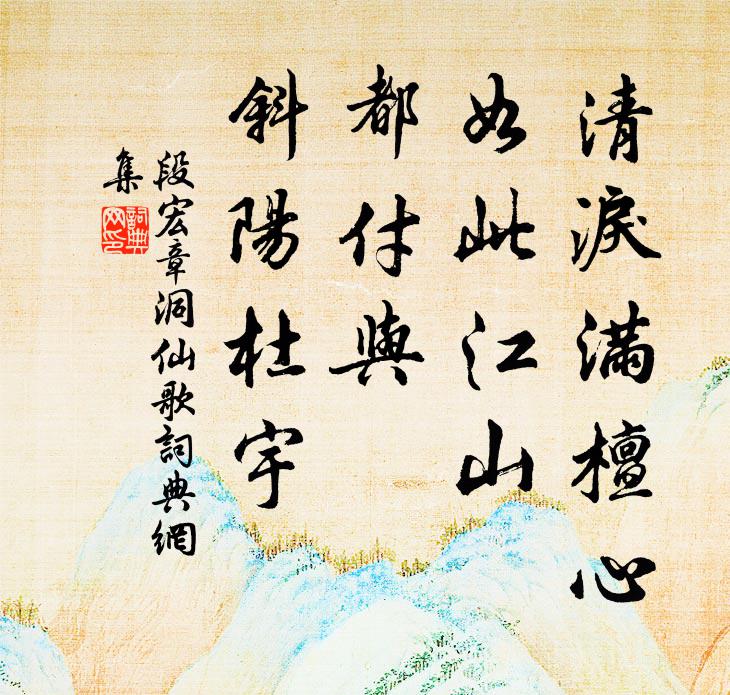 清淚滿檀心
如此江山
都付與
斜陽杜宇
段宏章洞仙歌詞典網
集
詞典
网印